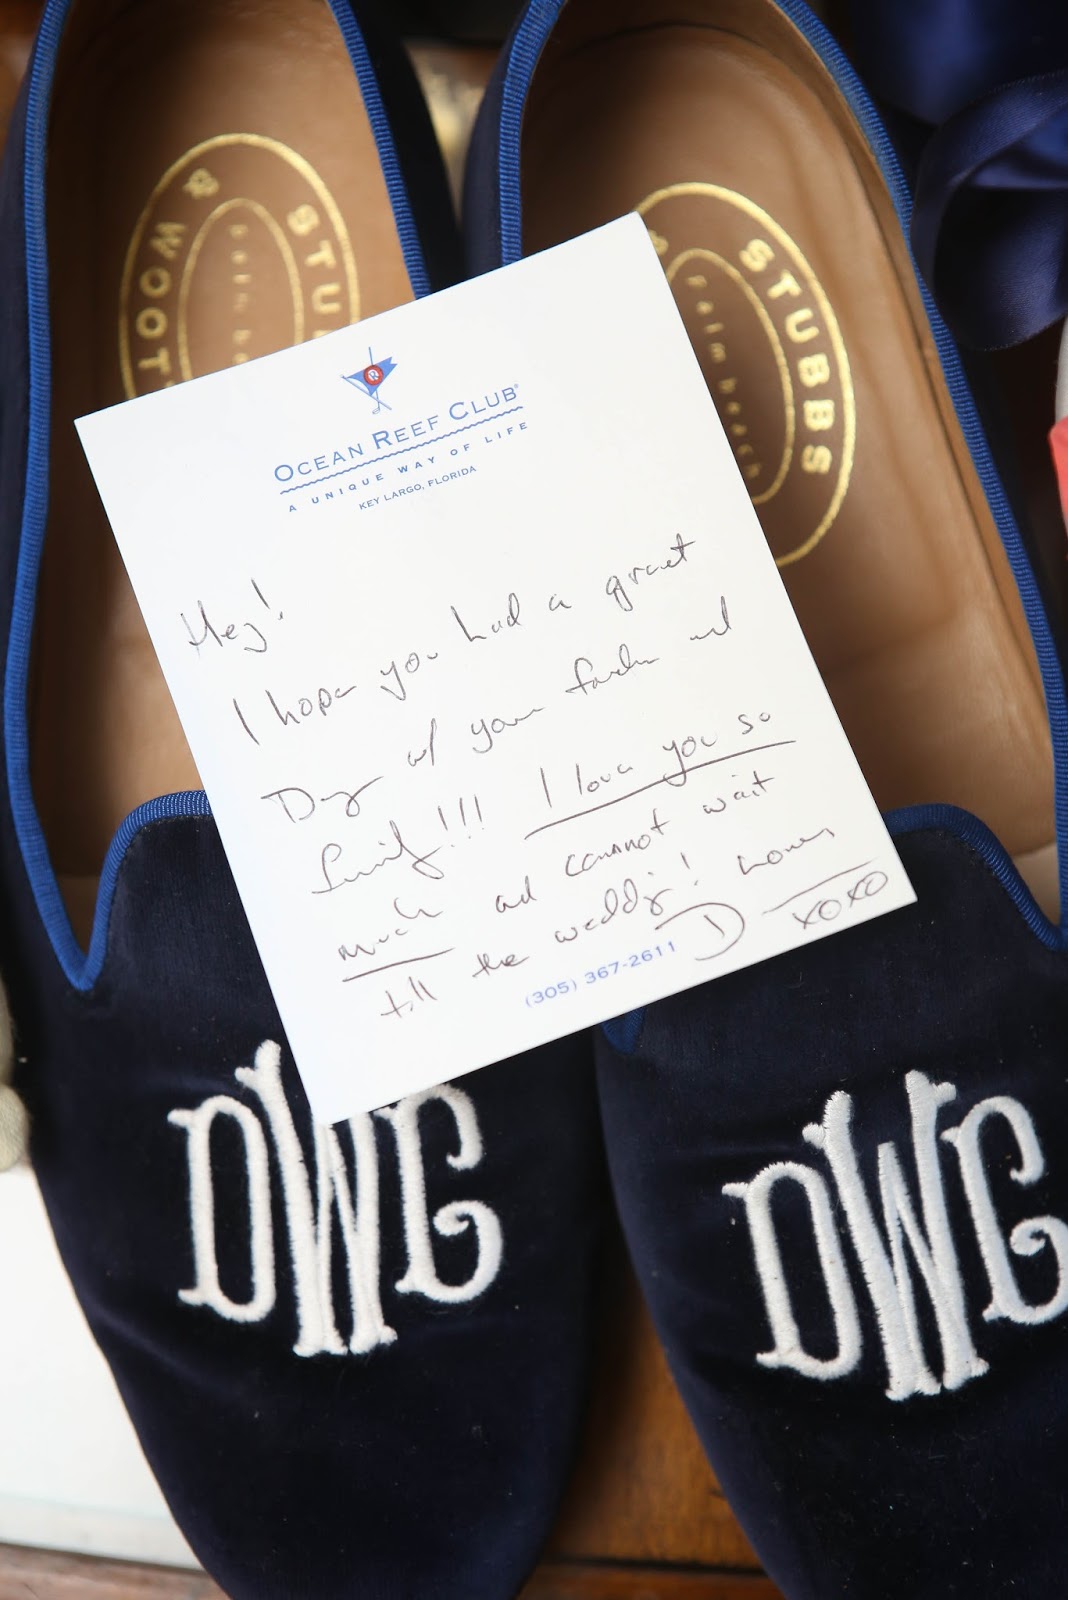 & STU
WOOT
palm be
STUBBS
&
palm beach
OCEAN REEF CLUB®
A UNIQUE WAY OF LIFE
KEY LARGO, FLORIDA
Hey!
I hope you had a great
Day w/ your father and
family!!! I love you so
much and cannot wait
till the wedding!
D XOXO
(305) 367-2611
DWG
DWG